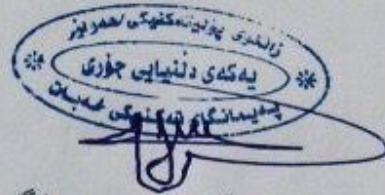 زانكۆی پولیتەکنیکی/هەولێر
یەکەی دڵنیایی جۆری
پەیمانگای تەکنیکی خەبات